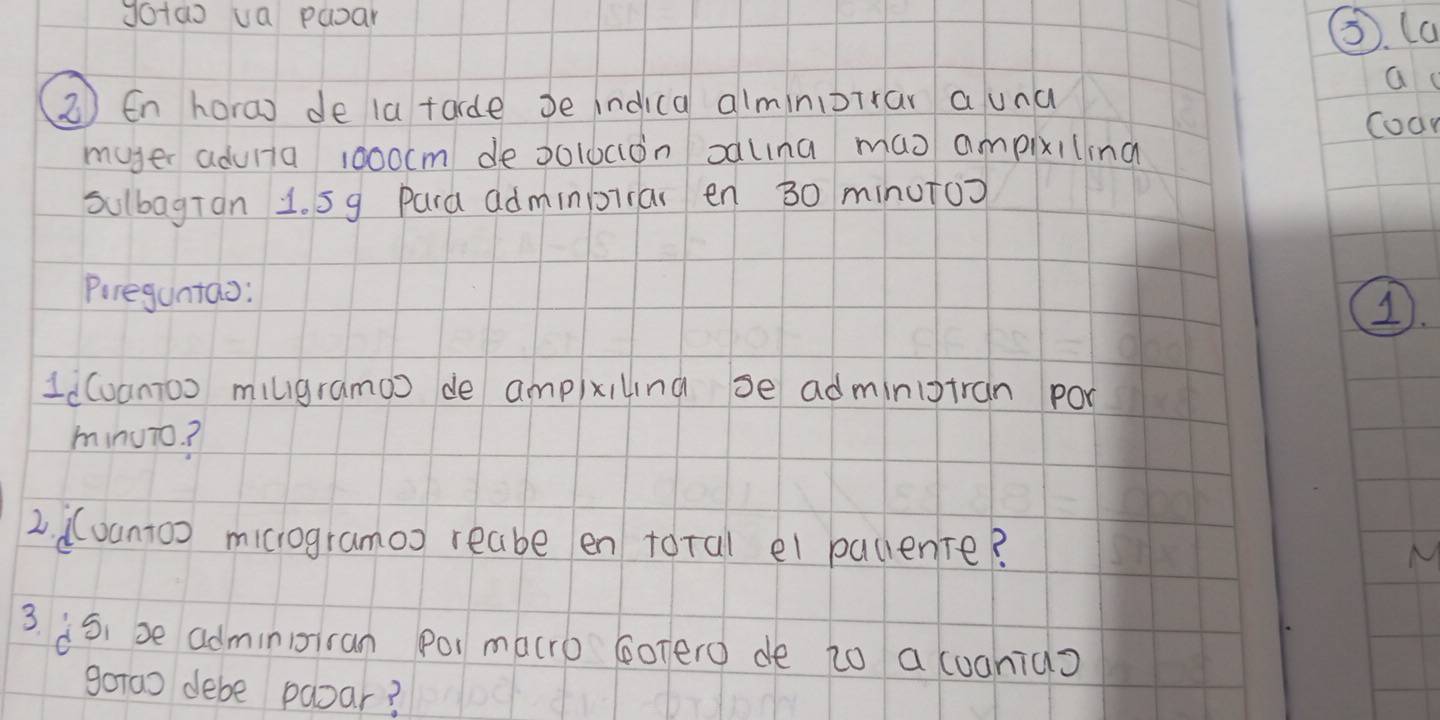 gotas va pasar
② En horas de la tarde se indica alministrar a una
muger adulta 1000cm de solución salina mas ampixilina
sulbagtan 1.5g Para administrar en 30 minutos
Pireguntas:
1¿Cuantos miligramos de ampixilina se administran por
minuto?
2.¿Cuantos microgramos recibe en total el paciente?
3.¿Si se administran por macro Gotero de 20 a cuantas
gotas debe pasar?
③. La
a
①.